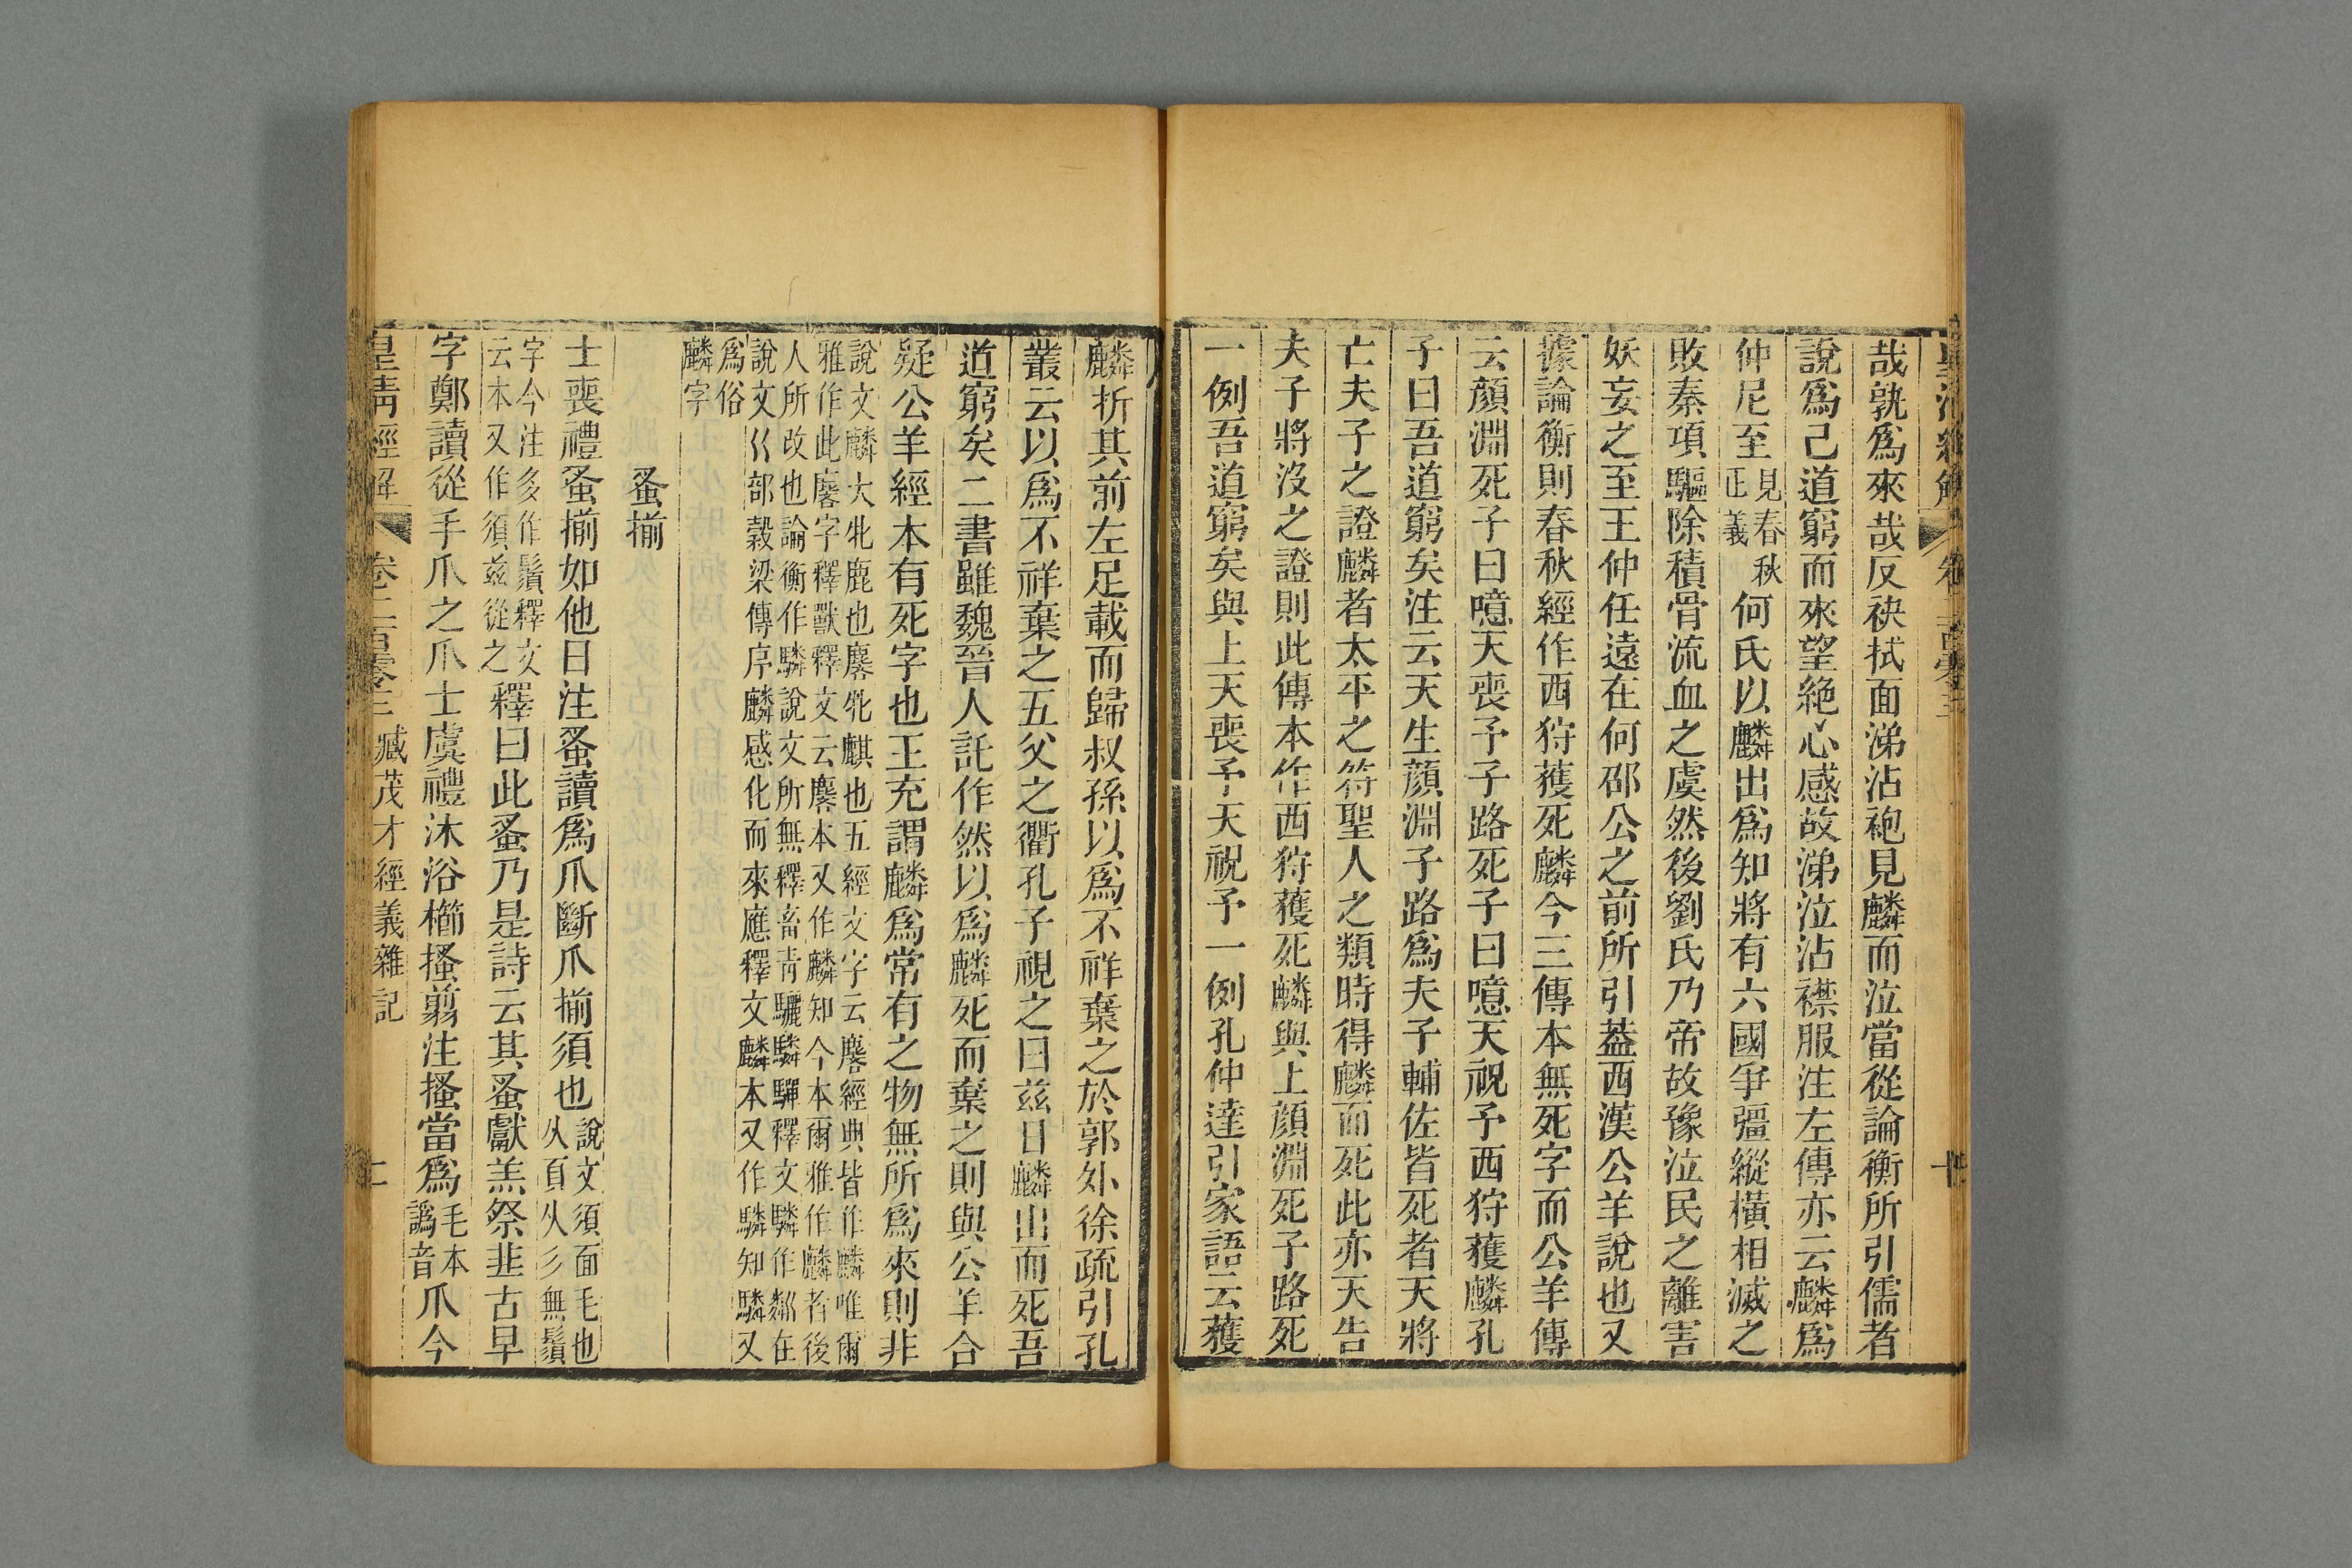 皇清經解 卷二百零三 十
哉孰爲來哉反袂拭面涕沾袍見麟而泣當從論衡所引儒者
說爲己道窮而來望絶心感故涕泣沾襟服注左傳亦云麟爲
仲尼至見春秋正義何氏以麟出爲知將有六國爭彊縱橫相滅之
敗秦項驅除積骨流血之虞然後劉氏乃帝故豫泣民之離害
妖妄之至王仲任遠在何邵公之前所引葢西漢公羊說也又
據論衡則春秋經作西狩獲死麟今三傳本無死字而公羊傳
云顏淵死子曰噫天喪予子路死子曰噫天祝予西狩獲麟孔
子曰吾道窮矣注云天生顏淵子路爲夫子輔佐皆死者天將
亡夫子之證麟者太平之符聖人之類時得麟而死此亦天告
夫子將沒之證則此傳本作西狩獲死麟與上顏淵死子路死
一例吾道窮矣與上天喪予天祝予一例孔仲達引家語云獲
麟折其前左足載而歸叔孫以爲不祥棄之於郭外徐疏引孔
叢云以爲不祥棄之五父之衢孔子視之曰兹日麟出而死吾
道窮矣二書雖魏晉人託作然以爲麟死而棄之則與公羊合
疑公羊經本有死字也王充謂麟爲常有之物無所爲來則非
說文麟大牝鹿也麐牝麒也五經文字云麐經典皆作麟唯爾
雅作此麐字釋獸釋文云麐本又作麟知今本爾雅作麟者後
人所改也論衡作驎說文所無釋畜靑驪驎驒釋文驎作粼在
說文巜部榖梁傳序麟感化而來應釋文麟本又作驎知驎又
爲俗
麟字
蚤揃
士喪禮蚤揃如他日注蚤讀爲爪斷爪揃須也說文須面毛也从頁从彡無鬚
字今注多作鬚釋文云本又作須兹從之釋曰此蚤乃是詩云其蚤獻羔祭韭古早
字鄭讀從手爪之爪士虞禮沐浴櫛搔翦注搔當爲毛本譌音爪今
皇清經解 卷二百零三 臧茂才經義雜記 十一